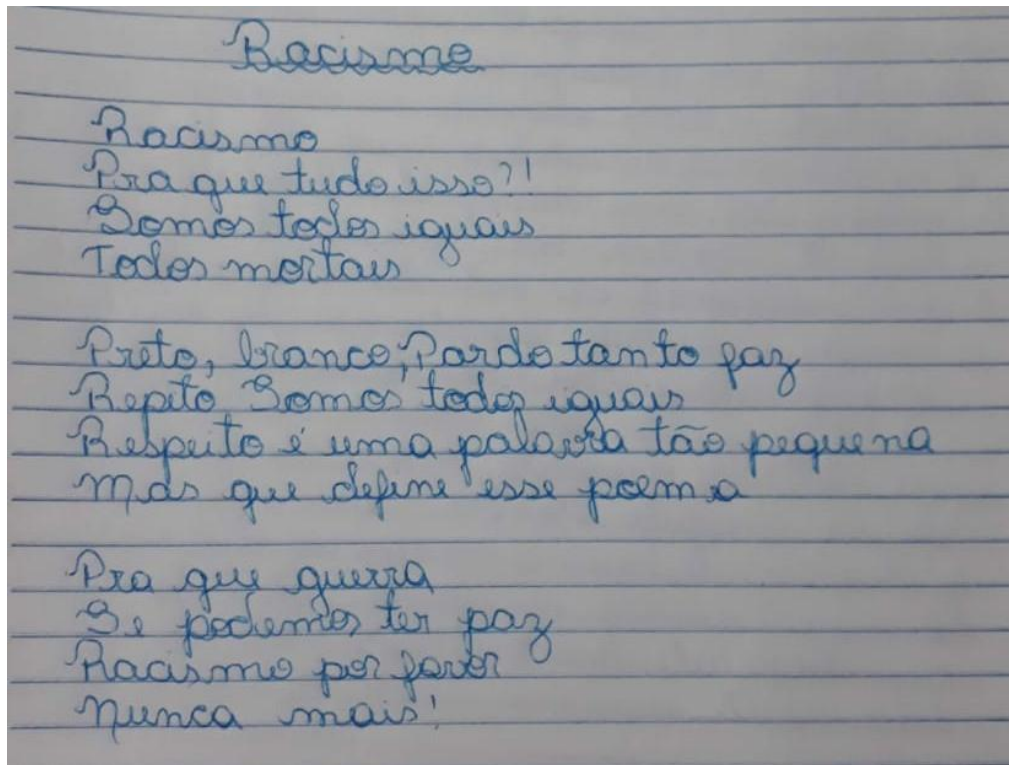 Racismo
Racismo
Pra que tudo isso?!
Somos todos iguais
Todos mortais
Preto, branco, Pardo tanto faz
Repito Somos todos iguais
Respeito é uma palavra tão pequena
Mas que define esse poema
Pra que guerra
Se podemos ter paz
Racismo por favor
Nunca mais!